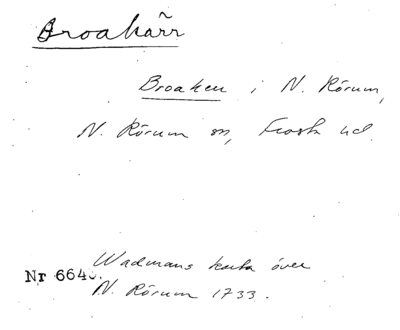 Broakärr
Broaken i N. Rörum,
N. Rörum sn, Frosta hd.
Wadmans karta över
Nr 664
N. Rörum 1733.